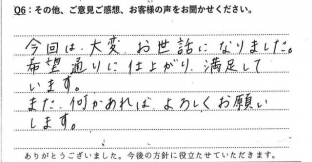 Q6：その他、ご意見ご感想、お客様の声をお聞かせください。
今回は、大変お世話になりました。
希望通りに仕上がり、満足して
います。
また、何かあれば よろしくお願い
します。
ありがとうございました。今後の方針に役立たせていただきます。